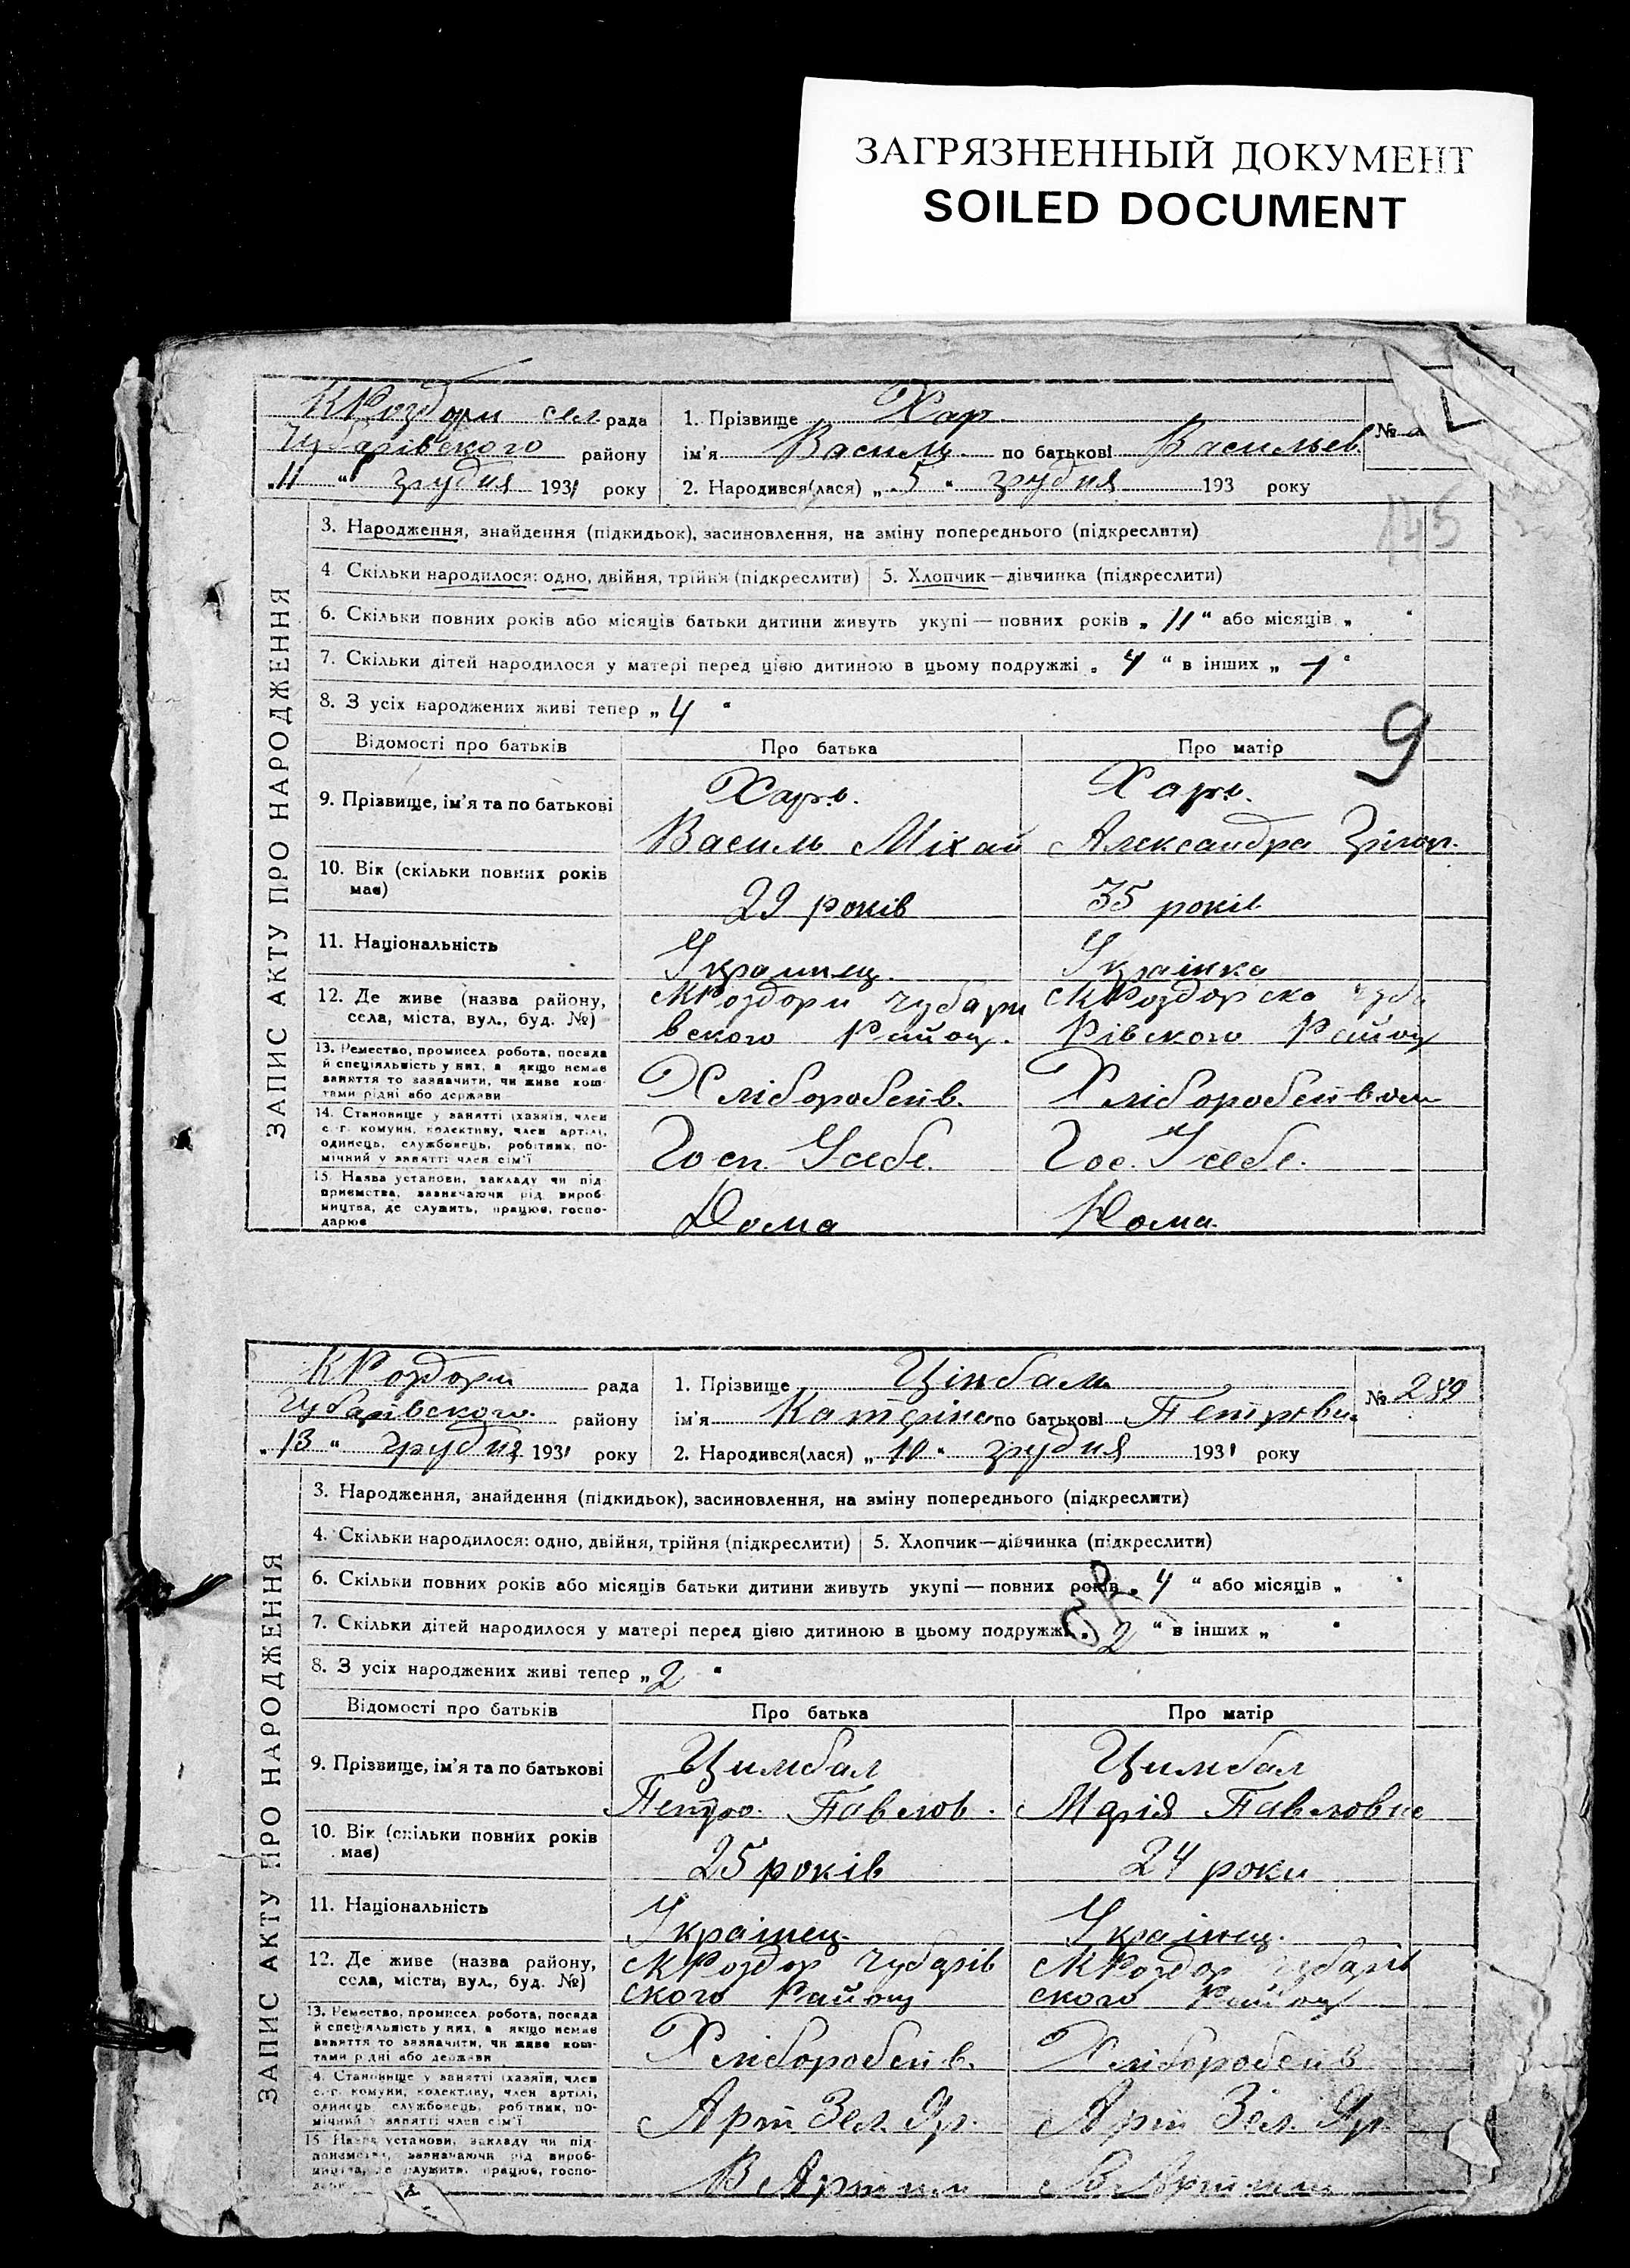 ЗАГРЯЗНЕННЫЙ ДОКУМЕНТ
SOILED DOCUMENT
КРоздори сел рада
Чубарівского району
„11“ грудня 1931 року
1. Прізвище Хар
ім'я Василь по батькові Васильев
№
2. Народився(лася) „5“ грудня 193 року
145
ЗАПИС АКТУ ПРО НАРОДЖЕННЯ
3. Народження, знайдення (підкидьок), засиновлення, на зміну попереднього (підкреслити)
4. Скільки народилося: одно, двійня, трійня (підкреслити) 5. Хлопчик—дівчинка (підкреслити)
6. Скільки повних років або місяців батьки дитини живуть укупі — повних років „11“ або місяців „ “
7. Скільки дітей народилося у матері перед цією дитиною в цьому подружжі „4“ в інших „1“
8. З усіх народжених живі тепер „4“
9
Відомості про батьків Про батька Про матір
9. Прізвище, ім'я та по батькові
Харь. Харь.
Василь Міхай Александра Григор.
10. Вік (скільки повних років має)
29 років 35 років
11. Національність
Украинец. Украінка
12. Де живе (назва району, села, міста, вул., буд. №)
КРоздори Чубари КРоздорско Чуба
вского Району. рівского Району
13. Ремество, промисел, робота, посада й спеціяльність у них, а якщо немає заняття то зазначити, чи живе коштами рідні або держави
Хлібороб Хлібороб
14. Становище у занятті (хазяїн, член с.-г. комуни, колективу, член артілі, одинець, службовець, робітник, помічний у занятті член сім'ї
Госп. Усебе. Гос. Усебе.
15. Назва установи, закладу чи підприємства, зазначаючи рід виробництва, де служить, працює, господарює
Дома Дома.
КРоздори рада
Чубарівского району
„13“ грудня 1931 року
1. Прізвище Цінбаль
ім'я Катерина по батькові Петровн.
№ 289
2. Народився(лася) „10“ грудня 1931 року
ЗАПИС АКТУ ПРО НАРОДЖЕННЯ
3. Народження, знайдення (підкидьок), засиновлення, на зміну попереднього (підкреслити)
4. Скільки народилося: одно, двійня, трійня (підкреслити) 5. Хлопчик—дівчинка (підкреслити)
6. Скільки повних років або місяців батьки дитини живуть укупі — повних років „4“ або місяців „ “
7. Скільки дітей народилося у матері перед цією дитиною в цьому подружжі „2“ в інших „ “
8. З усіх народжених живі тепер „2“
Відомості про батьків Про батька Про матір
9. Прізвище, ім'я та по батькові
Цимбал Цимбал
Петро. Павлов. Марія Павловна
10. Вік (скільки повних років має)
25 років 24 роки
11. Національність
Украінец. Украінец.
12. Де живе (назва району, села, міста, вул., буд. №)
КРоздор Чубарів КРоздор Чубарів
ского Району ского Району
13. Ремество, промисел, робота, посада й спеціяльність у них, а якщо немає заняття то зазначити, чи живе коштами рідні або держави
Хлібороб Хлібороб
14. Становище у занятті (хазяїн, член с.-г. комуни, колективу, член артілі, одинець, службовець, робітник, помічний у занятті член сім'ї
Арті Зел. Яр. Арті Зел. Яр.
15. Назва установи, закладу чи підприємства, зазначаючи рід виробництва, де служить, працює, господарює
В Артили В Артили